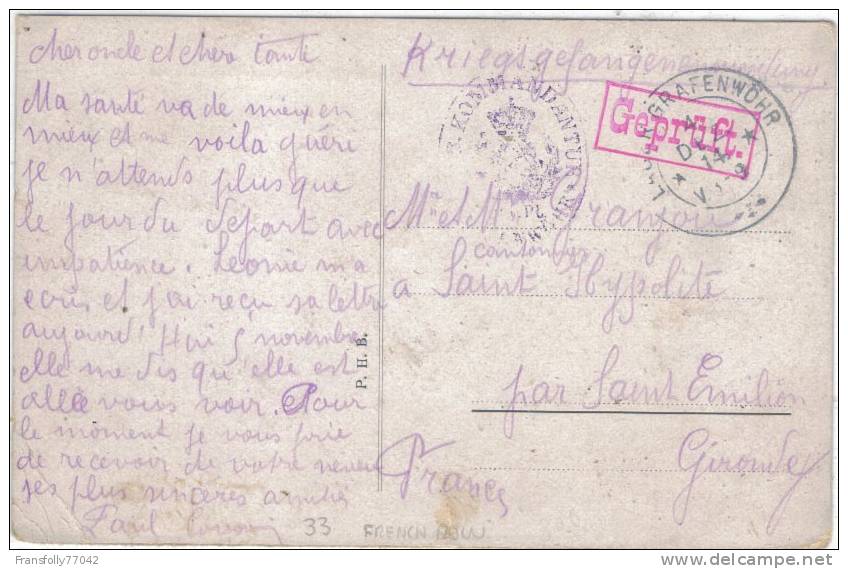 cher oncle et chère tante
Ma santé va de mieux en
mieux et me voila guéri
je n'attends plus que
le jour du départ avec
impatience. Leonie m a
ecris et j'ai reçu sa lettre
aujourd'hui 5 novembre
elle me dis qu'elle est
allée vous voir. Pour
le moment je vous prie
de recevoir de votre neveu
ses plus sinceres amitiés
Paul
P. H. B.
Kriegsgefangenensendung
KOMMANDANTUR
GRAFENWÖHR
Geprüft.
14
Mr et Mme
cantonnier
à Saint Hypolite
par Saint Emilion
Gironde
France
33 FRENCH POW
Fransfolly77042
delcampe.net